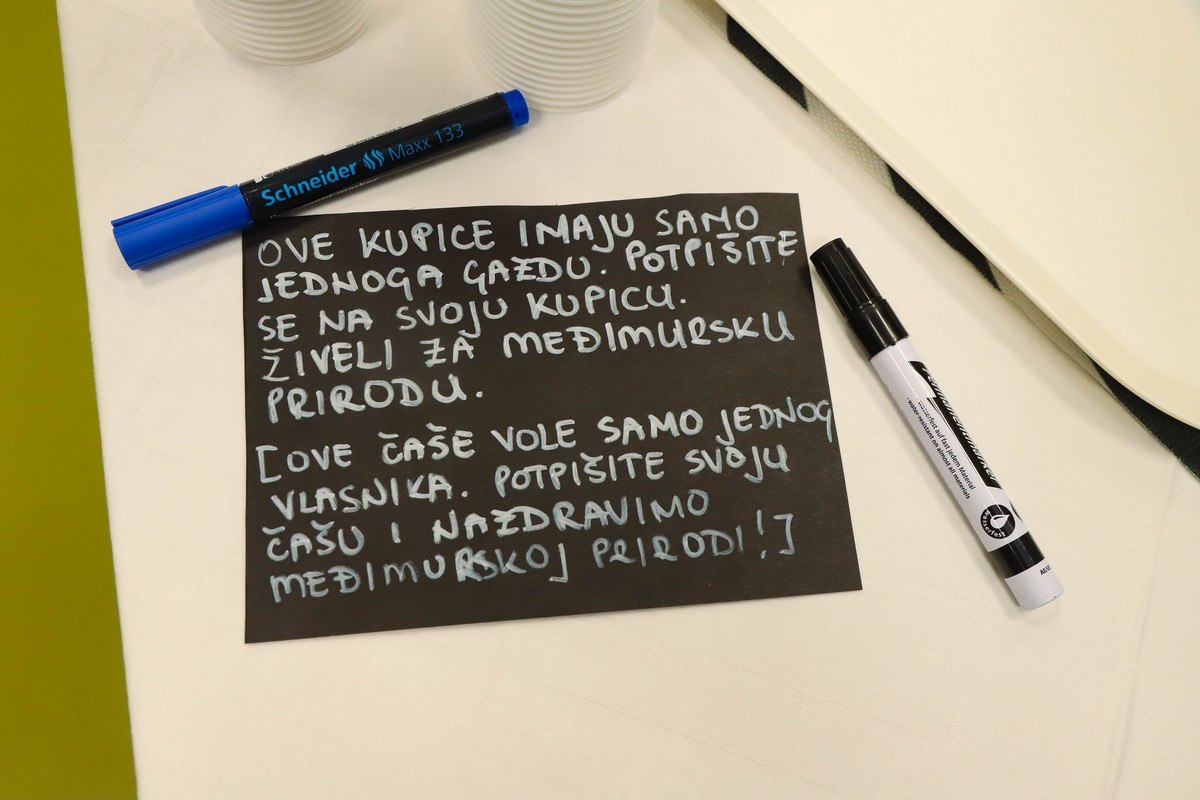 Schneider Maxx 133
OVE KUPICE IMAJU SAMO
JEDNOGA GAZDU. POTPIŠITE
SE NA SVOJU KUPICU.
ŽIVELI ZA MEĐIMURSKU
PRIRODU.
[OVE ČAŠE VOLE SAMO JEDNOG
VLASNIKA. POTPIŠITE SVOJU
ČAŠU I NAZDRAVIMO
MEĐIMURSKOJ PRIRODI!]
Permanentmarker
· wasserfest auf fast jedem Material
· water-resistant on almost all materials
Wasserfest